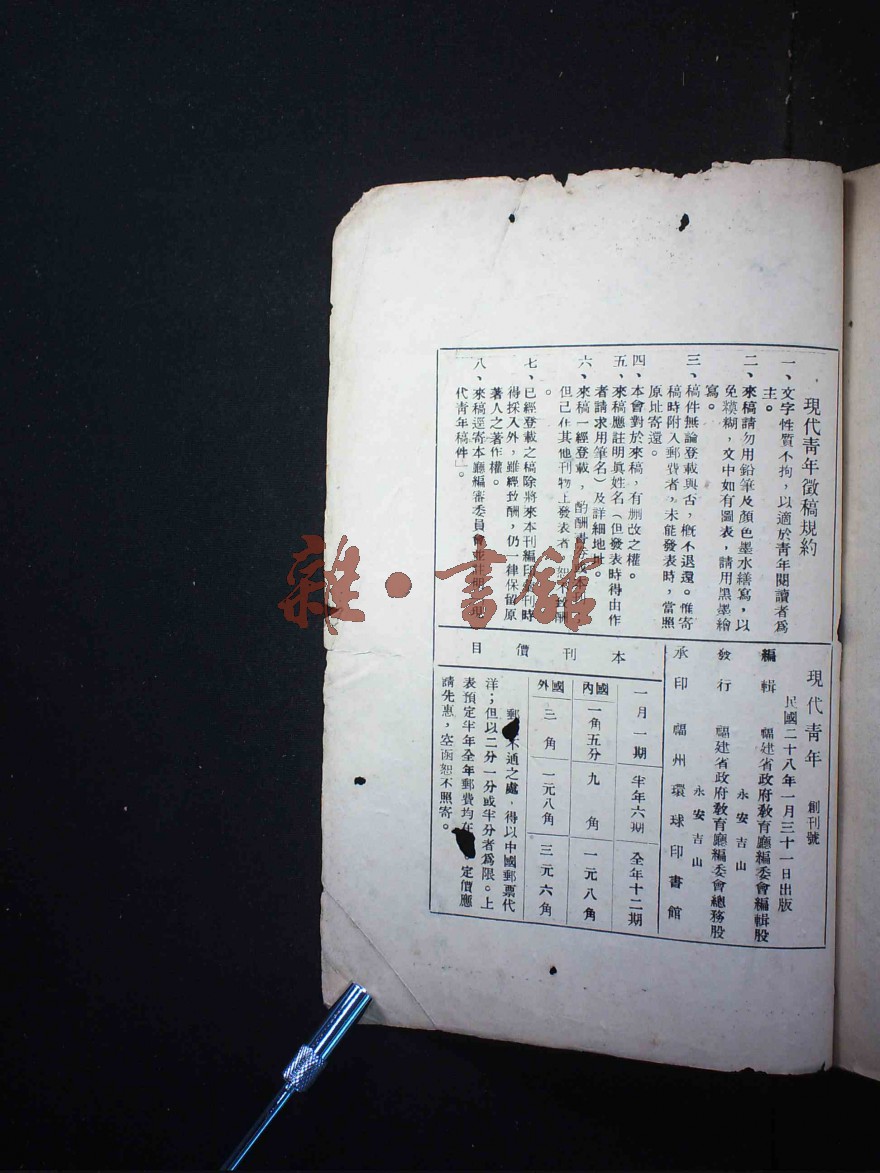 現代青年徵稿規約
一、文字性質不拘，以適於青年閱讀者爲
主。
二、來稿請勿用鉛筆及顏色墨水繕寫，以
免糢糊，文中如有圖表，請用黑墨繪
寫。
三、稿件無論登載與否，槪不退還。惟寄
稿時附入郵費者，未能發表時，當照
原址寄還。
四、本會對於來稿，有删改之權。
五、來稿應註明眞姓名（但發表時得由作
者請求用筆名）及詳細地址。
六、來稿一經登載，酌酬
但已在其他刊物上發表者，恕不致酬
。
七、已經登載之稿除將來本刊編印 刊時
得採入外，雖經致酬，仍一律保留原
著人之著作權。
八、來稿逕寄本廳編審委員會並註明「現
代靑年稿件」。
現代青年 創刊號
民國二十八年一月三十一日出版
編輯 福建省政府敎育廳編委會編輯股
永安吉山
發行 福建省政府敎育廳編委會總務股
永安吉山
承印 福州環球印書館
本刊價目
一月一期 半年六期 全年十二期
國內 一角五分 九角 一元八角
國外 三角 一元八角 三元六角
郵 不通之處，得以中國郵票代
洋；但以二分一分或半分者爲限。上
表預定半年全年郵費均在 。定價應
請先惠，空函恕不照寄。
雜·書館